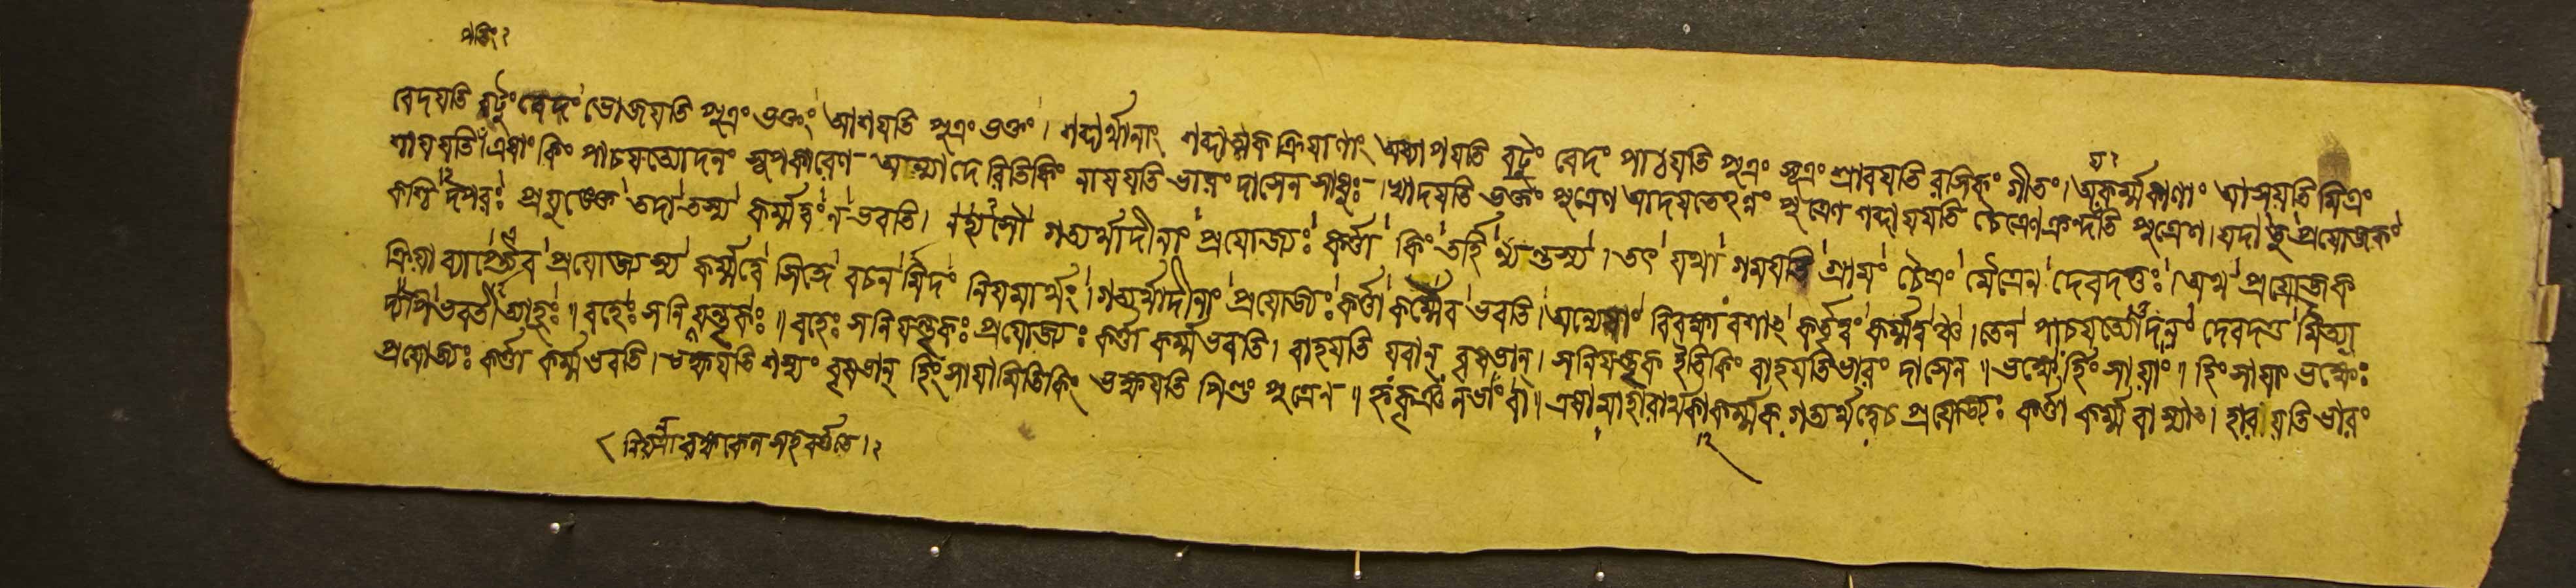 পতিং২
বেদযতি বটুং বেদং ভোজযতি পুত্রং ভক্তং আশযতি পুত্রং ভক্তং। শব্দার্থানাং শব্দাত্মক ক্রিযাণাং অধ্যাপযতি বটুং বেদং পাঠযতি পুত্রং সূত্রং শ্রাবযতি রসিকং গীতং। অকর্ম্মকাণাং আসযতি মিত্রং
শাযযতি। এষাং কিং পাচযত্যোদনং সূপকারেণ আত্মাদেরিতিকিং নাযযতি ভারং দাসেন সাধুঃ। খাদযতি ভক্তং পুত্রেণ আদযতেঽন্নং পুত্রেণ শব্দাযযতি চৈত্রেণ ক্রন্দতি পুত্রেণ। যদা তু প্রযোজকং
কশ্চিদপরঃ প্রযুঙ্ক্তে তদা তস্য কর্ম্মত্বং ন ভবতি। নহ্যসৌ গত্যর্থাদীনাং প্রযোজ্যঃ কর্ত্তা কিং তর্হি ণ্যন্তস্য। তৎ যথা গমযতি গ্রামং চৈত্রং মৈত্রেন দেবদত্তঃ। অথ প্রযোজক
ক্রিযাব্যাপ্তেরেব প্রযোজ্যস্য কর্ম্মত্বে সিদ্ধে বচনমিদং নিযমার্থং। গত্যর্থাদীনাং প্রযোজ্যঃ কর্ত্তা কর্ম্মৈব ভবতি। অন্যেষাং বিবক্ষাবশাৎ কর্তৃত্বং কর্ম্মত্বঞ্চ। তেন পাচযত্যোদনং দেবদত্তমিত্যা
দ্যপি ভবতীত্যাহুঃ॥ বহেঃ সনিযন্তৃকঃ॥ বহেঃ সনিযন্তৃকঃ প্রযোজ্যঃ কর্ত্তা কর্ম্ম ভবতি। বাহযতি যবান্ বৃষভান্। সনিযন্তৃক ইতিকিং বাহযতি ভারং দাসেন॥ ভক্ষের্হিংসাযাং॥ হিংসাযাং ভক্ষেঃ
প্রযোজ্যঃ কর্ত্তা কর্ম্ম ভবতি। ভক্ষযতি শস্যং বৃষভান্ হিংসাযামিতিকিং ভক্ষযতি পিণ্ডং পুত্রেন॥ হৃকৃঞ নভাং বা॥ এষামাহারার্থকাকর্ম্মক গত্যর্থত্বেচ প্রযোজ্যঃ কর্ত্তা কর্ম্ম বা স্যাৎ। হারযতি ভারং
সহ বর্ত্ততে।২